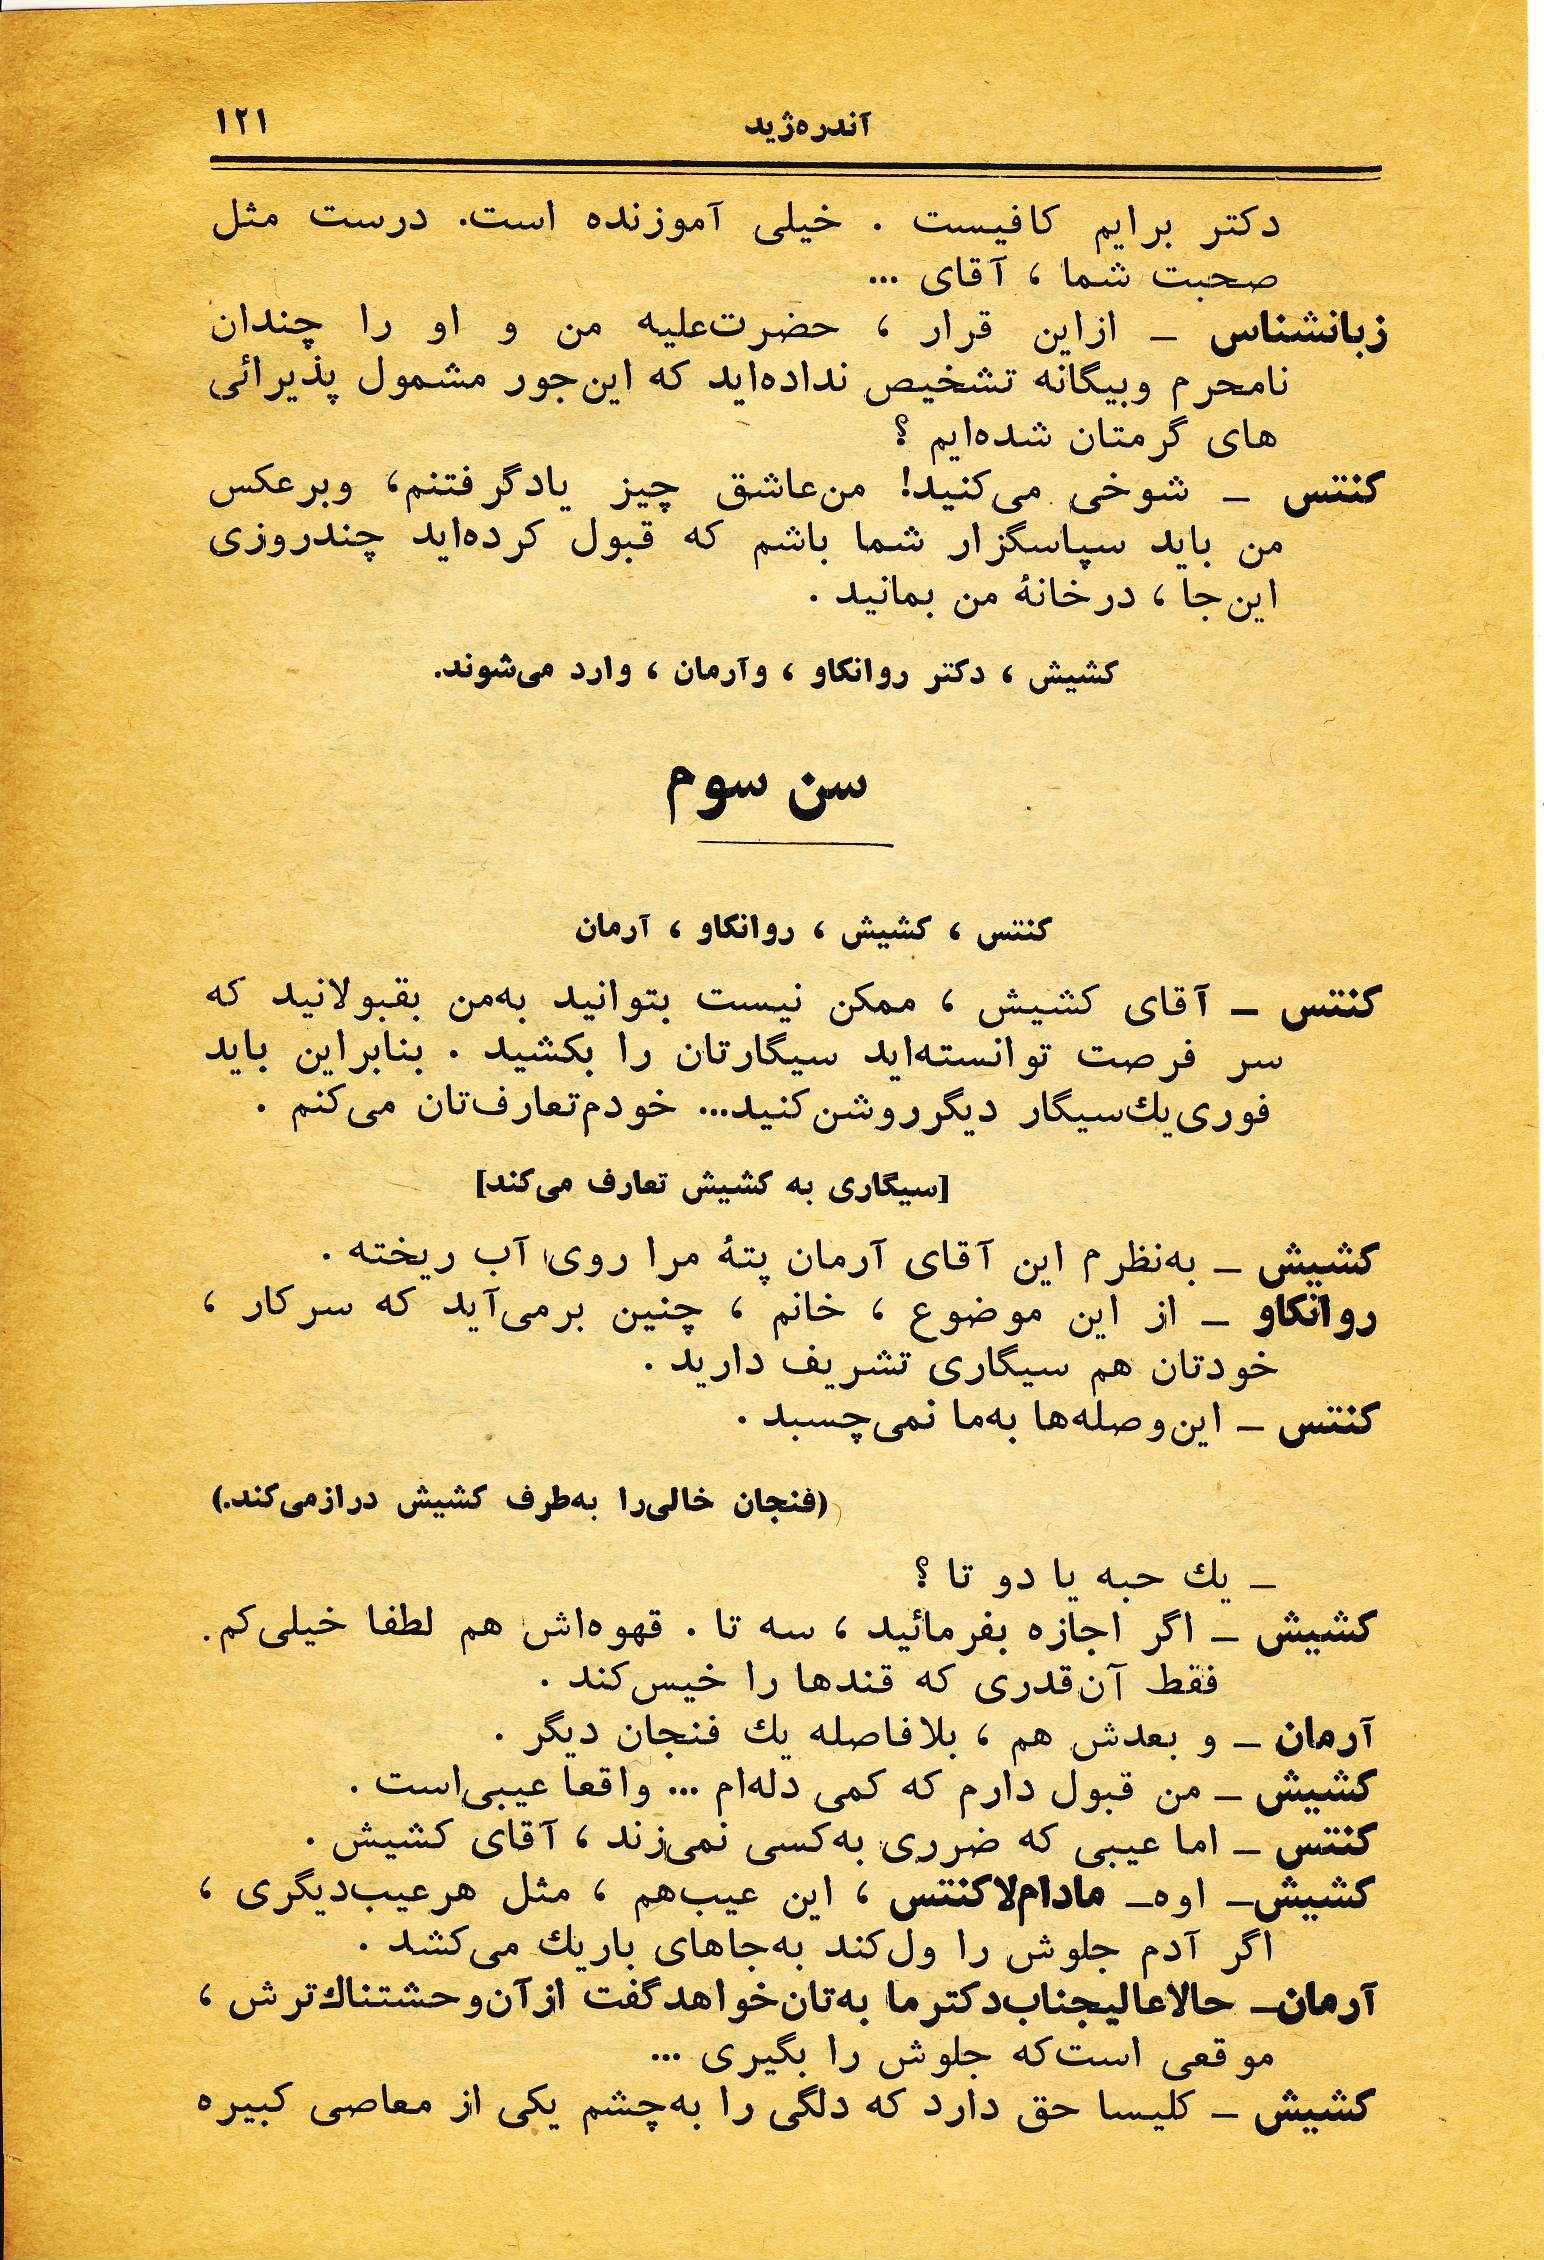 آندره‌ژید
۱۲۱
دکتر برایم کافیست . خیلی آموزنده است. درست مثل
صحبت شما ، آقای ...
زبانشناس ــ ازاین قرار ، حضرت‌علیه من و او را چندان
نامحرم وبیگانه تشخیص نداده‌اید که این‌جور مشمول پذیرائی
های گرمتان شده‌ایم ؟
کنتس ــ شوخی می‌کنید! من‌عاشق چیز یادگرفتنم، وبرعکس
من باید سپاسگزار شما باشم که قبول کرده‌اید چندروزی
این‌جا ، درخانهٔ من بمانید .
کشیش ، دکتر روانکاو ، وآرمان ، وارد می‌شوند.
سن سوم
کنتس ، کشیش ، روانکاو ، آرمان
کنتس ــ آقای کشیش ، ممکن نیست بتوانید به‌من بقبولانید که
سر فرصت توانسته‌اید سیگارتان را بکشید . بنابراین باید
فوری‌یك‌سیگار دیگرروشن‌کنید... خودم‌تعارف‌تان می‌کنم .
[سیگاری به کشیش تعارف می‌کند]
کشیش ــ به‌نظرم این آقای آرمان پتهٔ مرا روی آب ریخته .
روانکاو ــ از این موضوع ، خانم ، چنین برمی‌آید که سرکار ،
خودتان هم سیگاری تشریف دارید .
کنتس ــ این‌وصله‌ها به‌ما نمی‌چسبد .
(فنجان خالی‌را به‌طرف کشیش درازمی‌کند.)
ــ یك حبه یا دو تا ؟
کشیش ــ اگر اجازه بفرمائید ، سه تا . قهوه‌اش هم لطفا خیلی‌کم.
فقط آن‌قدری که قندها را خیس‌کند .
آرمان ــ و بعدش هم ، بلافاصله یك فنجان دیگر .
کشیش ــ من قبول دارم که کمی دله‌ام ... واقعا عیبی‌است .
کنتس ــ اما عیبی که ضرری به‌کسی نمی‌زند ، آقای کشیش .
کشیش‌ــ اوه‌ــ مادام‌لاکنتس ، این عیب‌هم ، مثل هرعیب‌دیگری ،
اگر آدم جلوش را ول‌کند به‌جاهای باریك می‌کشد .
آرمان‌ــ حالاعالیجناب‌دکترما به‌تان‌خواهدگفت ازآن‌وحشتناك‌ترش ،
موقعی است‌که جلوش را بگیری ...
کشیش ــ کلیسا حق دارد که دلگی را به‌چشم یکی از معاصی کبیره